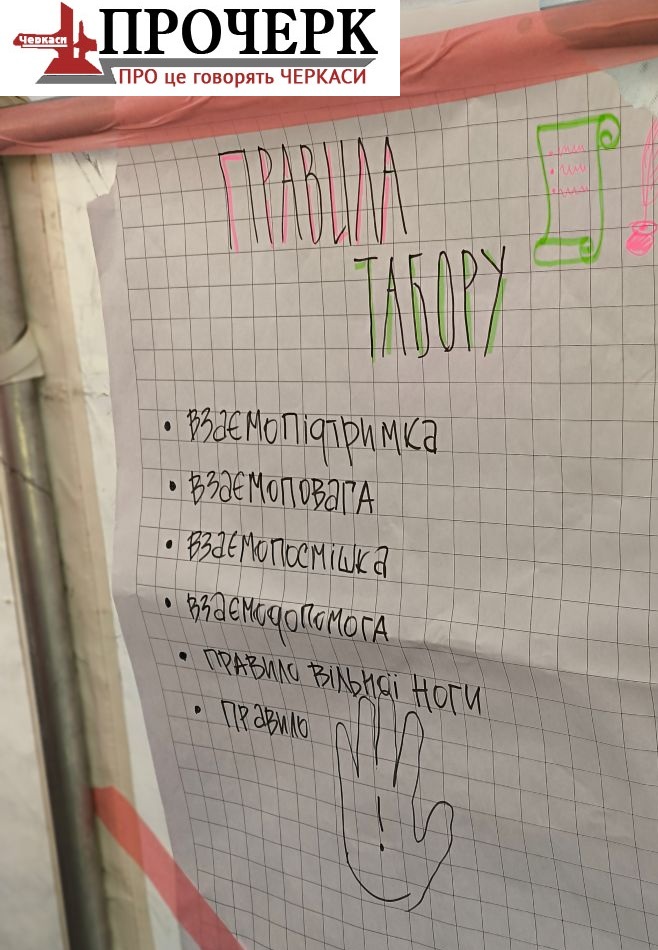 Черкаси
ПРОЧЕРК
ПРО це говорять ЧЕРКАСИ
ПРАВИЛА
ТАБОРУ
• взаємопідтримка
• взаємоповага
• взаємопосмішка
• взаємодопомога
• правило вільної ноги
• правило
!